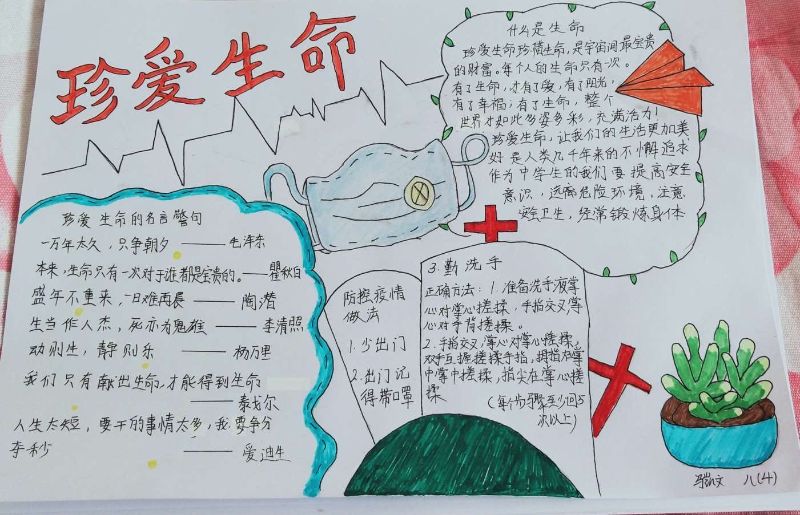 珍爱生命
什么是生命
珍爱生命珍惜生命,是宇宙间最宝贵
的财富。每个人的生命只有一次。
有了生命,才有了爱,有了阳光,
有了幸福;有了生命,整个
世界才如此多姿多彩,充满活力!
珍爱生命,让我们的生活更加美
好是人类几千年来的不懈追求
作为中学生的我们要提高安全
意识,远离危险环境,注意
安全卫生,经常锻炼身体
珍爱生命的名言警句
一万年太久,只争朝夕——毛泽东
本来,生命只有一次对于谁都是宝贵的。——瞿秋白
盛年不重来,一日难再晨——陶潜
生当作人杰,死亦为鬼雄——李清照
动则生,静则乐——杨万里
我们只有献出生命,才能得到生命
——泰戈尔
人生太短,要干的事情太多,我要争分
夺秒——爱迪生
防控疫情
做法
1.少出门
2.出门记
得带口罩
3.勤洗手
正确方法:1.准备洗手液掌
心对掌心搓揉,手指交叉,掌
心对手背搓揉。
2.手指交叉,掌心对掌心搓揉,
双手互握搓揉手指,拇指在掌
中掌中搓揉,指尖在掌心搓
揉
(每个步骤至少回5
次以上)
八(4)